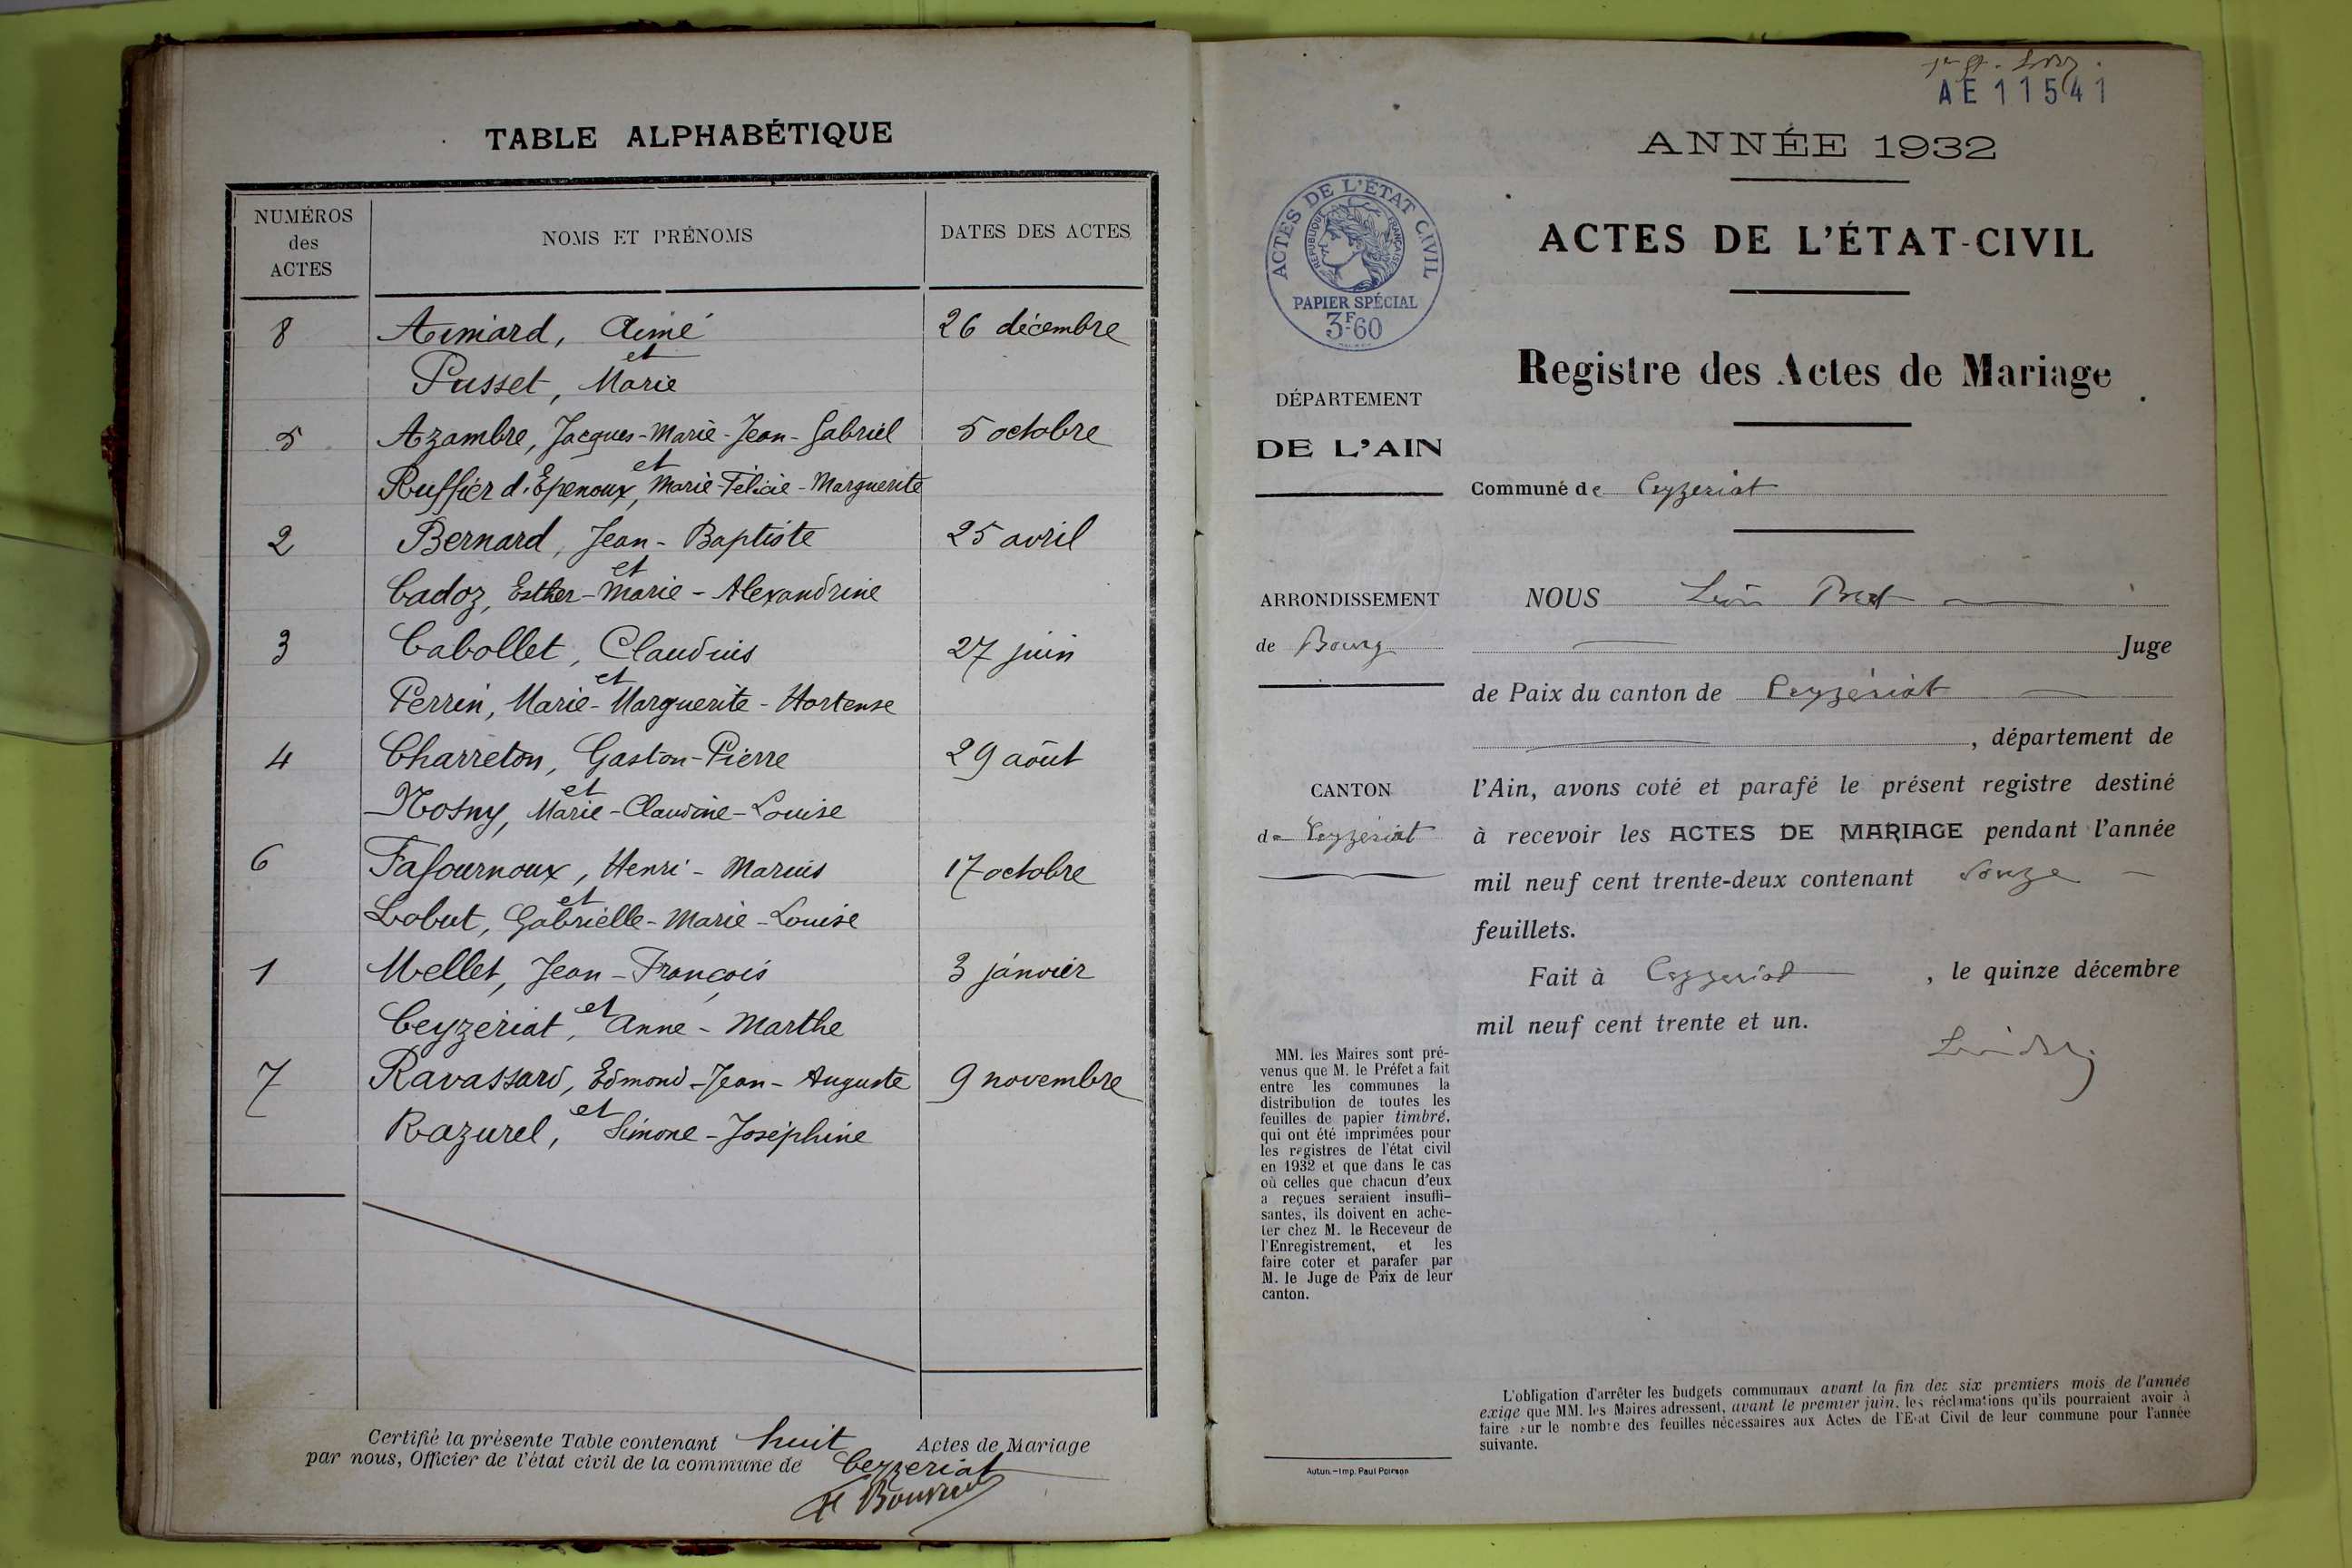 TABLE ALPHABÉTIQUE
NUMÉROS des ACTES
NOMS ET PRÉNOMS
DATES DES ACTES
8 Aimard, Aimé 26 décembre
et
Pusset, Marie
5 Azambre, Jacques-Marie-Jean-Gabriel 5 octobre
et
Ruffier d'Epenoux, Marie-Félicie-Marguerite
2 Bernard, Jean-Baptiste 25 avril
et
Cadoz, Esther-Marie-Alexandrine
3 Cabollet, Claudius 27 juin
et
Perrin, Marie-Marguerite-Hortense
4 Charreton, Gaston-Pierre 29 août
et
Nosny, Marie-Claudine-Louise
6 Fafournoux, Henri-Marius 17 octobre
et
Lobut, Gabrielle-Marie-Louise
1 Mellet, Jean-François 3 janvier
et
Ceyzériat, Anne-Marthe
7 Ravassard, Edmond-Jean-Auguste 9 novembre
et
Razurel, Simone-Joséphine
Certifié la présente Table contenant huit Actes de Mariage
par nous, Officier de l'état civil de la commune de Ceyzeriat
AE 11541
ANNÉE 1932
ACTES DE L'ÉTAT-CIVIL
Registre des Actes de Mariage
ACTES DE L'ÉTAT CIVIL
RÉPUBLIQUE FRANÇAISE
PAPIER SPÉCIAL
3F60
DÉPARTEMENT
DE L'AIN
Commune de Ceyzeriat
ARRONDISSEMENT
de Bourg
CANTON
de Ceyzériat
NOUS Léon
Juge
de Paix du canton de Ceyzériat
, département de
l'Ain, avons coté et parafé le présent registre destiné
à recevoir les ACTES DE MARIAGE pendant l'année
mil neuf cent trente-deux contenant douze
feuillets.
Fait à Ceyzeriat, le quinze décembre
mil neuf cent trente et un.
MM. les Maires sont pré-
venus que M. le Préfet a fait
entre les communes la
distribution de toutes les
feuilles de papier timbré,
qui ont été imprimées pour
les registres de l'état civil
en 1932 et que dans le cas
où celles que chacun d'eux
a reçues seraient insuffi-
santes, ils doivent en ache-
ter chez M. le Receveur de
l'Enregistrement, et les
faire coter et parafer par
M. le Juge de Paix de leur
canton.
L'obligation d'arrêter les budgets communaux avant la fin des six premiers mois de l'année
exige que MM. les Maires adressent, avant le premier juin, les réclamations qu'ils pourraient avoir à
faire sur le nombre des feuilles nécessaires aux Actes de l'Etat Civil de leur commune pour l'année
suivante.
Autun.—Imp. Paul Poirson